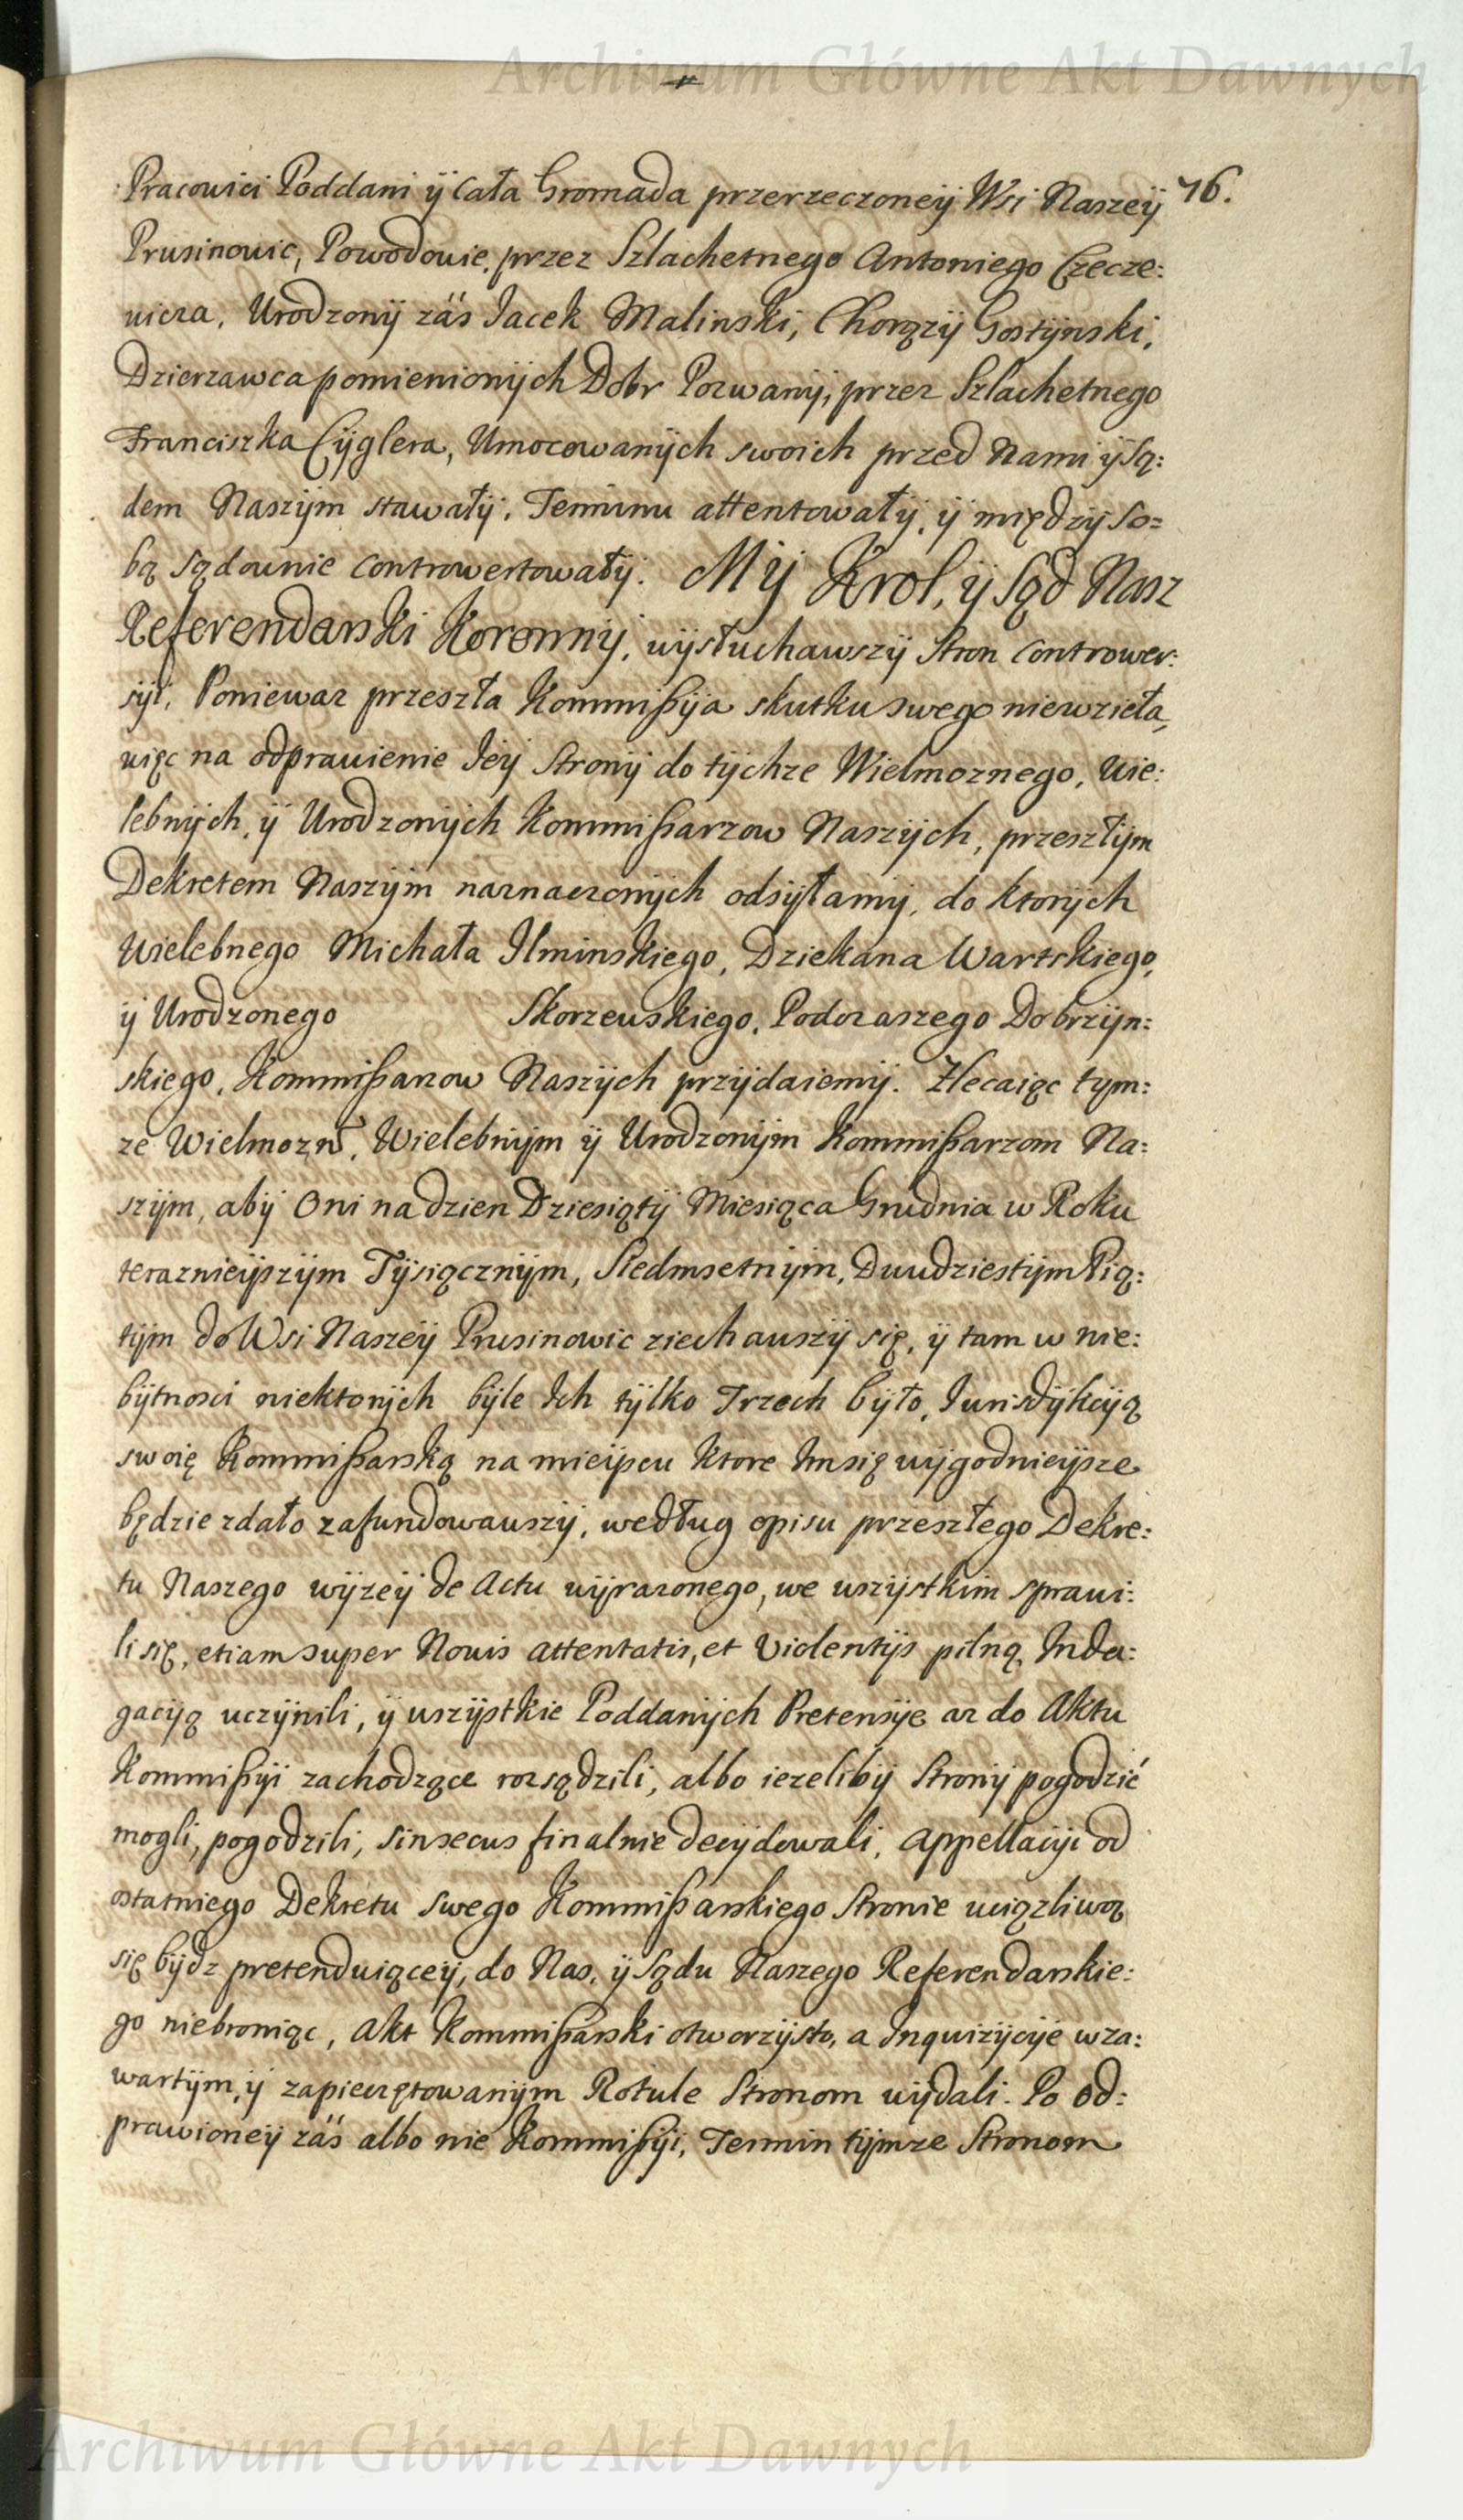 Archiwum Główne Akt Dawnych
76.
Pracowici Poddani ÿ cała Gromada przerzeczoneÿ Wsi Naszeÿ
Prusinowic, Powodowie, przez Szlachetnego Antoniego Czecze:
wicza, Urodzonÿ záś Jacek Malinski, Chorązÿ Gostÿnski,
Dzierzawca pomienionÿch Dobr Pozwanÿ, przez Szlachetnego
Franciszka Cÿglera, Umocowanÿch swoich przed Nami ÿ Są:
dem Naszÿm stawałÿ, Terminu attentowałÿ, ÿ międzÿ So=
bą sądownie controwertowałÿ. Mÿ Krol, ÿ Sąd Nasz
Referendarski Koronnÿ, wÿsłuchawszÿ Stron contrower:
sÿi, Poniewaz przeszła Kommißÿa skutku swego niewzieła,
więc na odprawienie Jeÿ Stronÿ do tÿchze Wielmoznego, Wie:
lebnÿch, ÿ Urodzonÿch Kommißarzow Naszÿch, przeszłÿm
Dekretem Naszÿm naznaczonÿch odsÿłamÿ, do ktorÿch
Wielebnego Michała Ilminskiego, Dziekana Wartskiego,
ÿ Urodzonego Skorzewskiego, Podczaszego Dobrzÿn:
skiego, Kommißarzow Naszÿch przÿdaiemÿ. Zlecaiąc tym:
ze Wielmozn̄, Wielebnÿm ÿ Urodzonÿm Kommißarzom Na:
szÿm, abÿ Oni na dzien Dziesiątÿ Miesiąca Grudnia w Roku
teraznieÿszÿm Tÿsiącznÿm, Siedmsetnÿm, Dwudziestÿm Pią:
tÿm do Wsi Naszeÿ Prusinowic ziechawszÿ się, ÿ tam w nie:
bÿtnosci niektorÿch bÿle Ich tÿlko Trzech bÿło, Jurisdÿkcÿą
swoię Kommißarską na mieÿscu ktore Im się wÿgodnieÿsze
będzie zdało zafundowawszÿ, według opisu przeszłego Dekre:
tu Naszego wÿzeÿ de Actu wÿrazonego, we wszÿstkim sprawi:
li się, etiam super Nouis attentatis, et Violentÿs pilną Inda:
gacÿą uczÿnili, ÿ wszÿstkie Poddanÿch Pretensÿe az do Aktu
Kommißÿi zachodzące rozsądzili, albo iezelibÿ Stronÿ pogodzić
mogli, pogodzili, sinsecus finalnie decÿdowali, appellacÿi od
ostatniego Dekretu swego Kommißarskiego Stronie uciązliwą
się bÿdz pretenduiąceÿ, do Nas, ÿ Sądu Naszego Referendarskie:
go niebroniąc, Akt Kommißarski otworzÿsto, a Inquizÿcÿe w za:
wartÿm, ÿ zapieczętowanÿm Rotule Stronom wÿdali. Po od:
prawioneÿ záś albo nie Kommißÿi, Termin tÿmze Stronom
Archiwum Główne Akt Dawnych